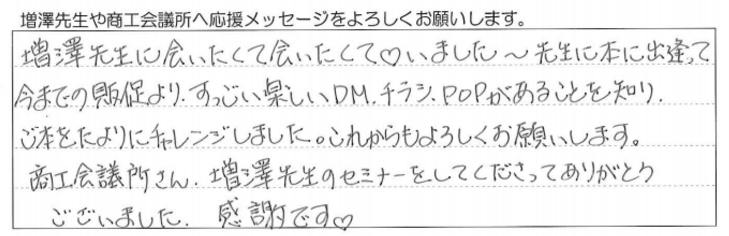 増澤先生や商工会議所へ応援メッセージをよろしくお願いします。
増澤先生に会いたくて会いたくて♡いました〜先生に本に出逢って
今までの販促より、すっごい楽しいDM、チラシ、POPがあることを知り、
ご本をたよりにチャレンジしました。これからもよろしくお願いします。
商工会議所さん、増澤先生のセミナーをしてくださってありがとう
ございました。感謝です♡